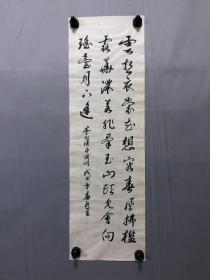 雲想衣裳花想容春風拂檻
露華濃若非羣玉山頭見會向
瑤臺月下逢
李白清平調詞 戊寅年春